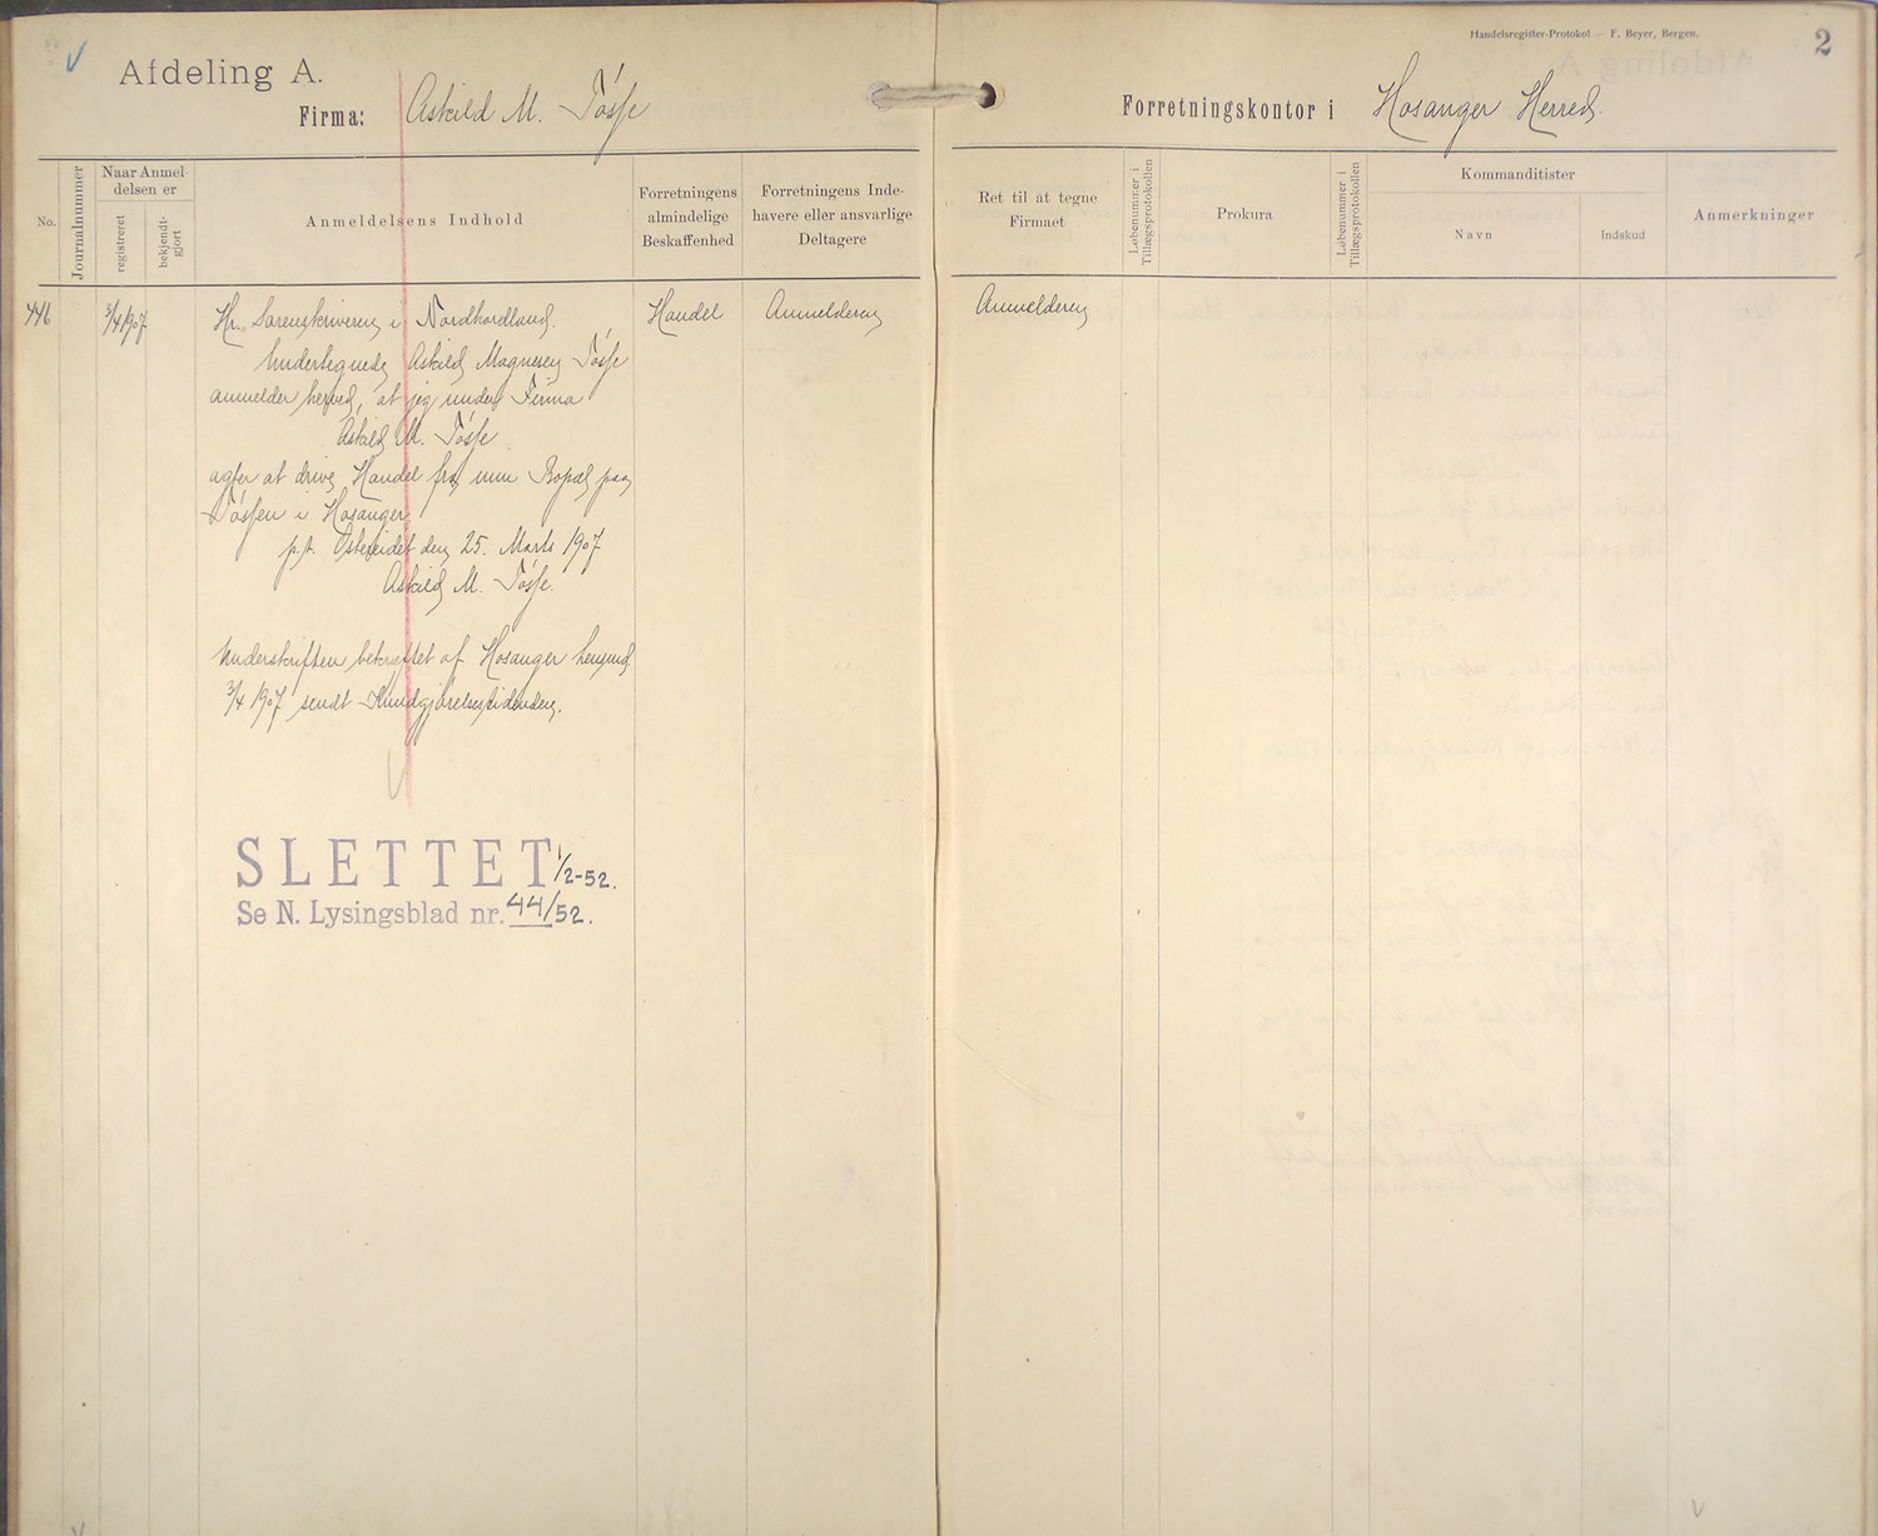 Handelsregister-Protokol — F. Beyer, Bergen.
2
Afdeling A.
Firma: Askild M. Tósse
Forretningskontor i Hosanger Herred.
No.
Journalnummer
Naar Anmel-
delsen er
registreret
bekjendt-
gjort
Anmeldelsens Indhold
Forretningens
almindelige
Beskaffenhed
Forretningens Inde-
havere eller ansvarlige
Deltagere
Ret til at tegne
Firmaet
Løbenummer i
Tillægsprotokollen
Prokura
Løbenummer i
Tillægsprotokollen
Kommanditister
Navn
Indskud
Anmerkninger
446
3/4 1907
Hr. Sorenskriveren i Nordhordland.
Undertegnede Askild Magnesen Tósse
anmelder herved, at jeg under Firma
Askild M. Tósse
agter at drive Handel fra min Bopæl paa
Tóssen i Hosanger
p.t. Ostereidet den 25. Marts 1907
Askild M. Tósse.
Underskriften bekræftet af Hosanger
3/4 1907 sendt Kundgjórelsestidenden.
Handel
Anmelderen
Anmelderen
SLETTET 1/2-52.
Se N. Lysingsblad nr. 44/52.